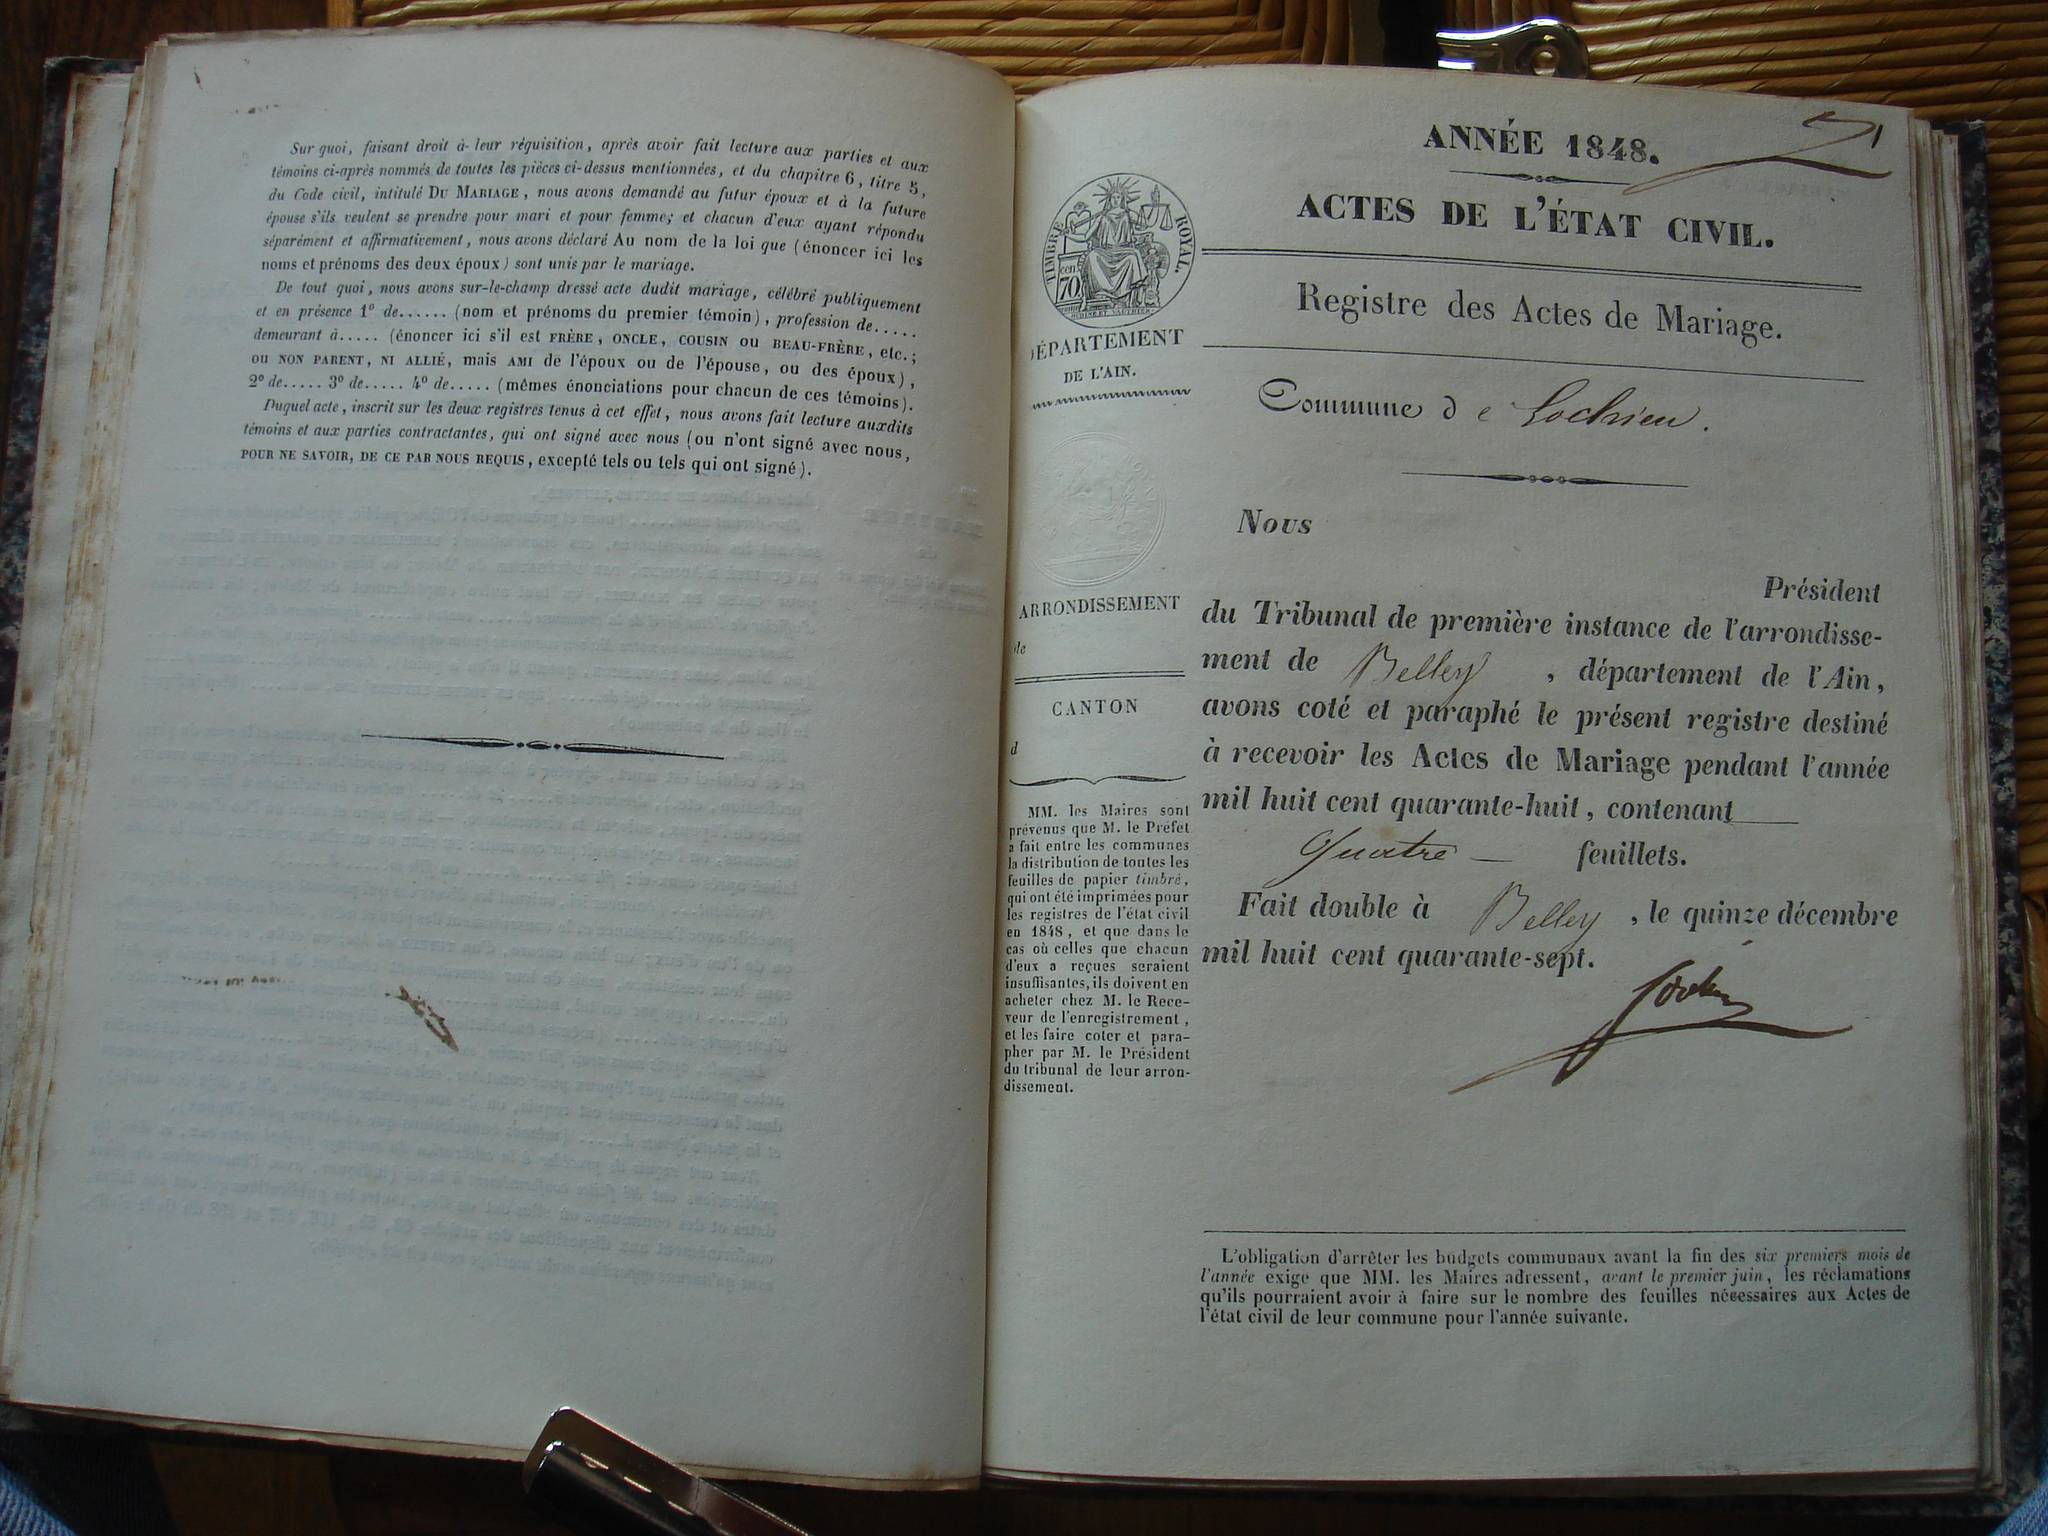 Sur quoi, faisant droit à leur réquisition, après avoir fait lecture aux parties et aux
témoins ci-après nommés de toutes les pièces ci-dessus mentionnées, et du chapitre 6, titre 5,
du Code civil, intitulé DU MARIAGE, nous avons demandé au futur époux et à la future
épouse s'ils veulent se prendre pour mari et pour femme; et chacun d'eux ayant répondu
séparément et affirmativement, nous avons déclaré Au nom de la loi que (énoncer ici les
noms et prénoms des deux époux) sont unis par le mariage.
De tout quoi, nous avons sur-le-champ dressé acte dudit mariage, célébré publiquement
et en présence 1º de...... (nom et prénoms du premier témoin), profession de.....
demeurant à..... (énoncer ici s'il est FRÈRE, ONCLE, COUSIN OU BEAU-FRÈRE, etc.;
OU NON PARENT, NI ALLIÉ, mais AMI de l'époux ou de l'épouse, ou des époux),
2º de..... 3º de..... 4º de..... (mêmes énonciations pour chacun de ces témoins).
Duquel acte, inscrit sur les deux registres tenus à cet effet, nous avons fait lecture auxdits
témoins et aux parties contractantes, qui ont signé avec nous (ou n'ont signé avec nous,
POUR NE SAVOIR, DE CE PAR NOUS REQUIS, excepté tels ou tels qui ont signé).
ANNÉE 1848.
1
ACTES DE L'ÉTAT CIVIL.
Registre des Actes de Mariage.
TIMBRE ROYAL.
70 cen
DÉPARTEMENT
DE L'AIN.
Commune de Lochieu.
Nous
Président
du Tribunal de première instance de l'arrondisse-
ment de Belley, département de l'Ain,
avons coté et paraphé le présent registre destiné
à recevoir les Actes de Mariage pendant l'année
mil huit cent quarante-huit, contenant
Quatre feuillets.
Fait double à Belley, le quinze décembre
mil huit cent quarante-sept.
ARRONDISSEMENT
de
CANTON
d
MM. les Maires sont
prévenus que M. le Préfet
a fait entre les communes
la distribution de toutes les
feuilles de papier timbré,
qui ont été imprimées pour
les registres de l'état civil
en 1848, et que dans le
cas où celles que chacun
d'eux a reçues seraient
insuffisantes, ils doivent en
acheter chez M. le Rece-
veur de l'enregistrement,
et les faire coter et para-
pher par M. le Président
du tribunal de leur arron-
dissement.
L'obligation d'arrêter les budgets communaux avant la fin des six premiers mois de
l'année exige que MM. les Maires adressent, avant le premier juin, les réclamations
qu'ils pourraient avoir à faire sur le nombre des feuilles nécessaires aux Actes de
l'état civil de leur commune pour l'année suivante.